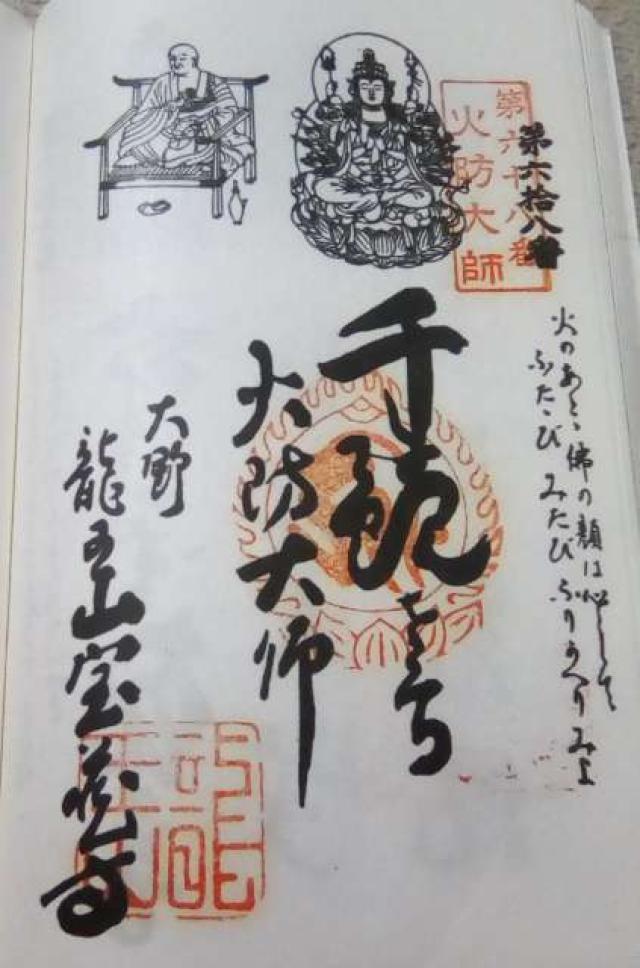 第六十八番
火防大師
第六拾八番
火のあとゝ佛の顔は心して
ふたゝびみたびふりかへりみよ
千観世音
火防大師
大野
龍王山宝蔵寺